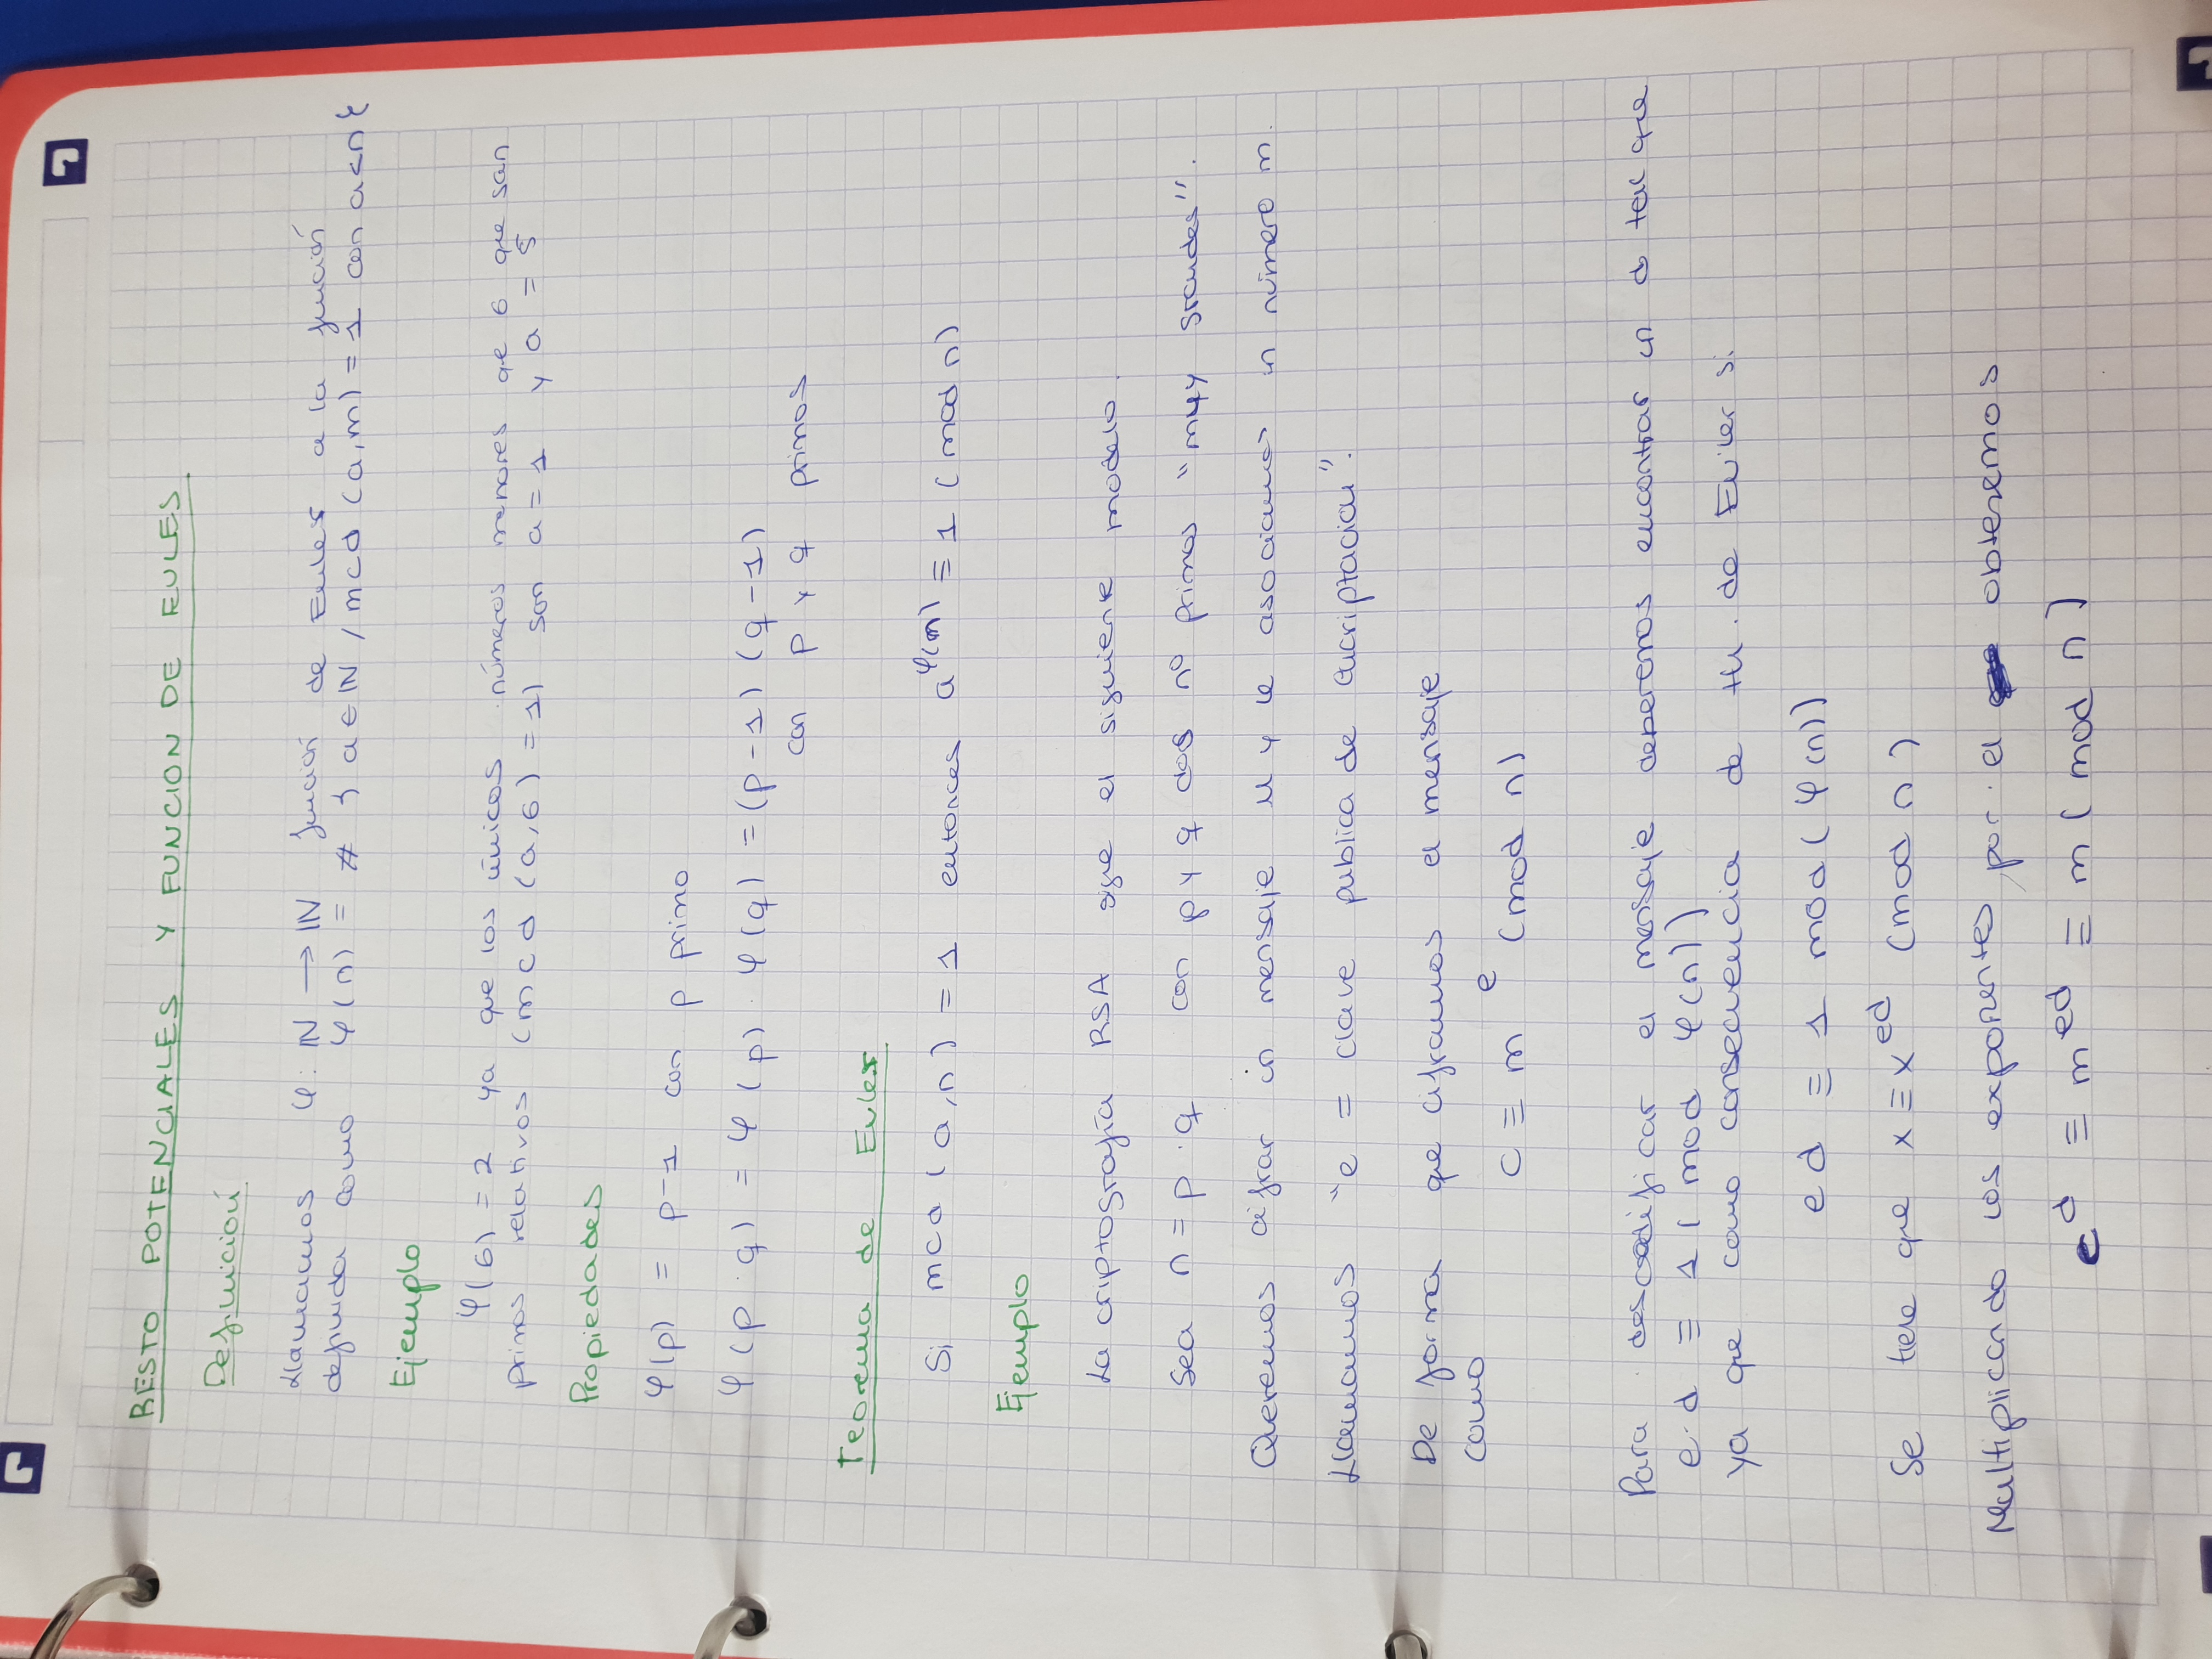 RESTO POTENCIALES Y FUNCION DE EULES
Definición
Llamamos φ: IN → IN función de Euler a la función
definida como φ(n) = # { a ∈ IN / mcd (a,m) = 1 con a<n }
Ejemplo
φ(6) = 2 ya que los únicos números menores que 6 que son
primos relativos (mcd (a,6) = 1) son a = 1 y a = 5
Propiedades
φ(p) = p-1 con p primo
φ(p·q) = φ(p)·φ(q) = (p-1)(q-1)
con p y q primos
Teorema de Euler
Si mcd (a,n) = 1 entonces a^φ(n) ≡ 1 (mod n)
Ejemplo
La criptografía RSA sigue el siguiente modelo.
Sea n = p·q con p y q dos nº primos "muy grandes".
Queremos cifrar un mensaje M y le asociamos un número m.
Llamamos "e = clave publica de encriptacion".
De forma que ciframos el mensaje
como
c ≡ m^e (mod n)
Para descodificar el mensaje deberemos encontrar un d tal que
e·d ≡ 1 (mod φ(n))
ya que como consecuencia de th. de Euler si
ed ≡ 1 mod (φ(n))
Se tiene que x ≡ x^ed (mod n)
Multiplicando los exponentes por el obtenemos
c^d ≡ m^ed ≡ m (mod n)